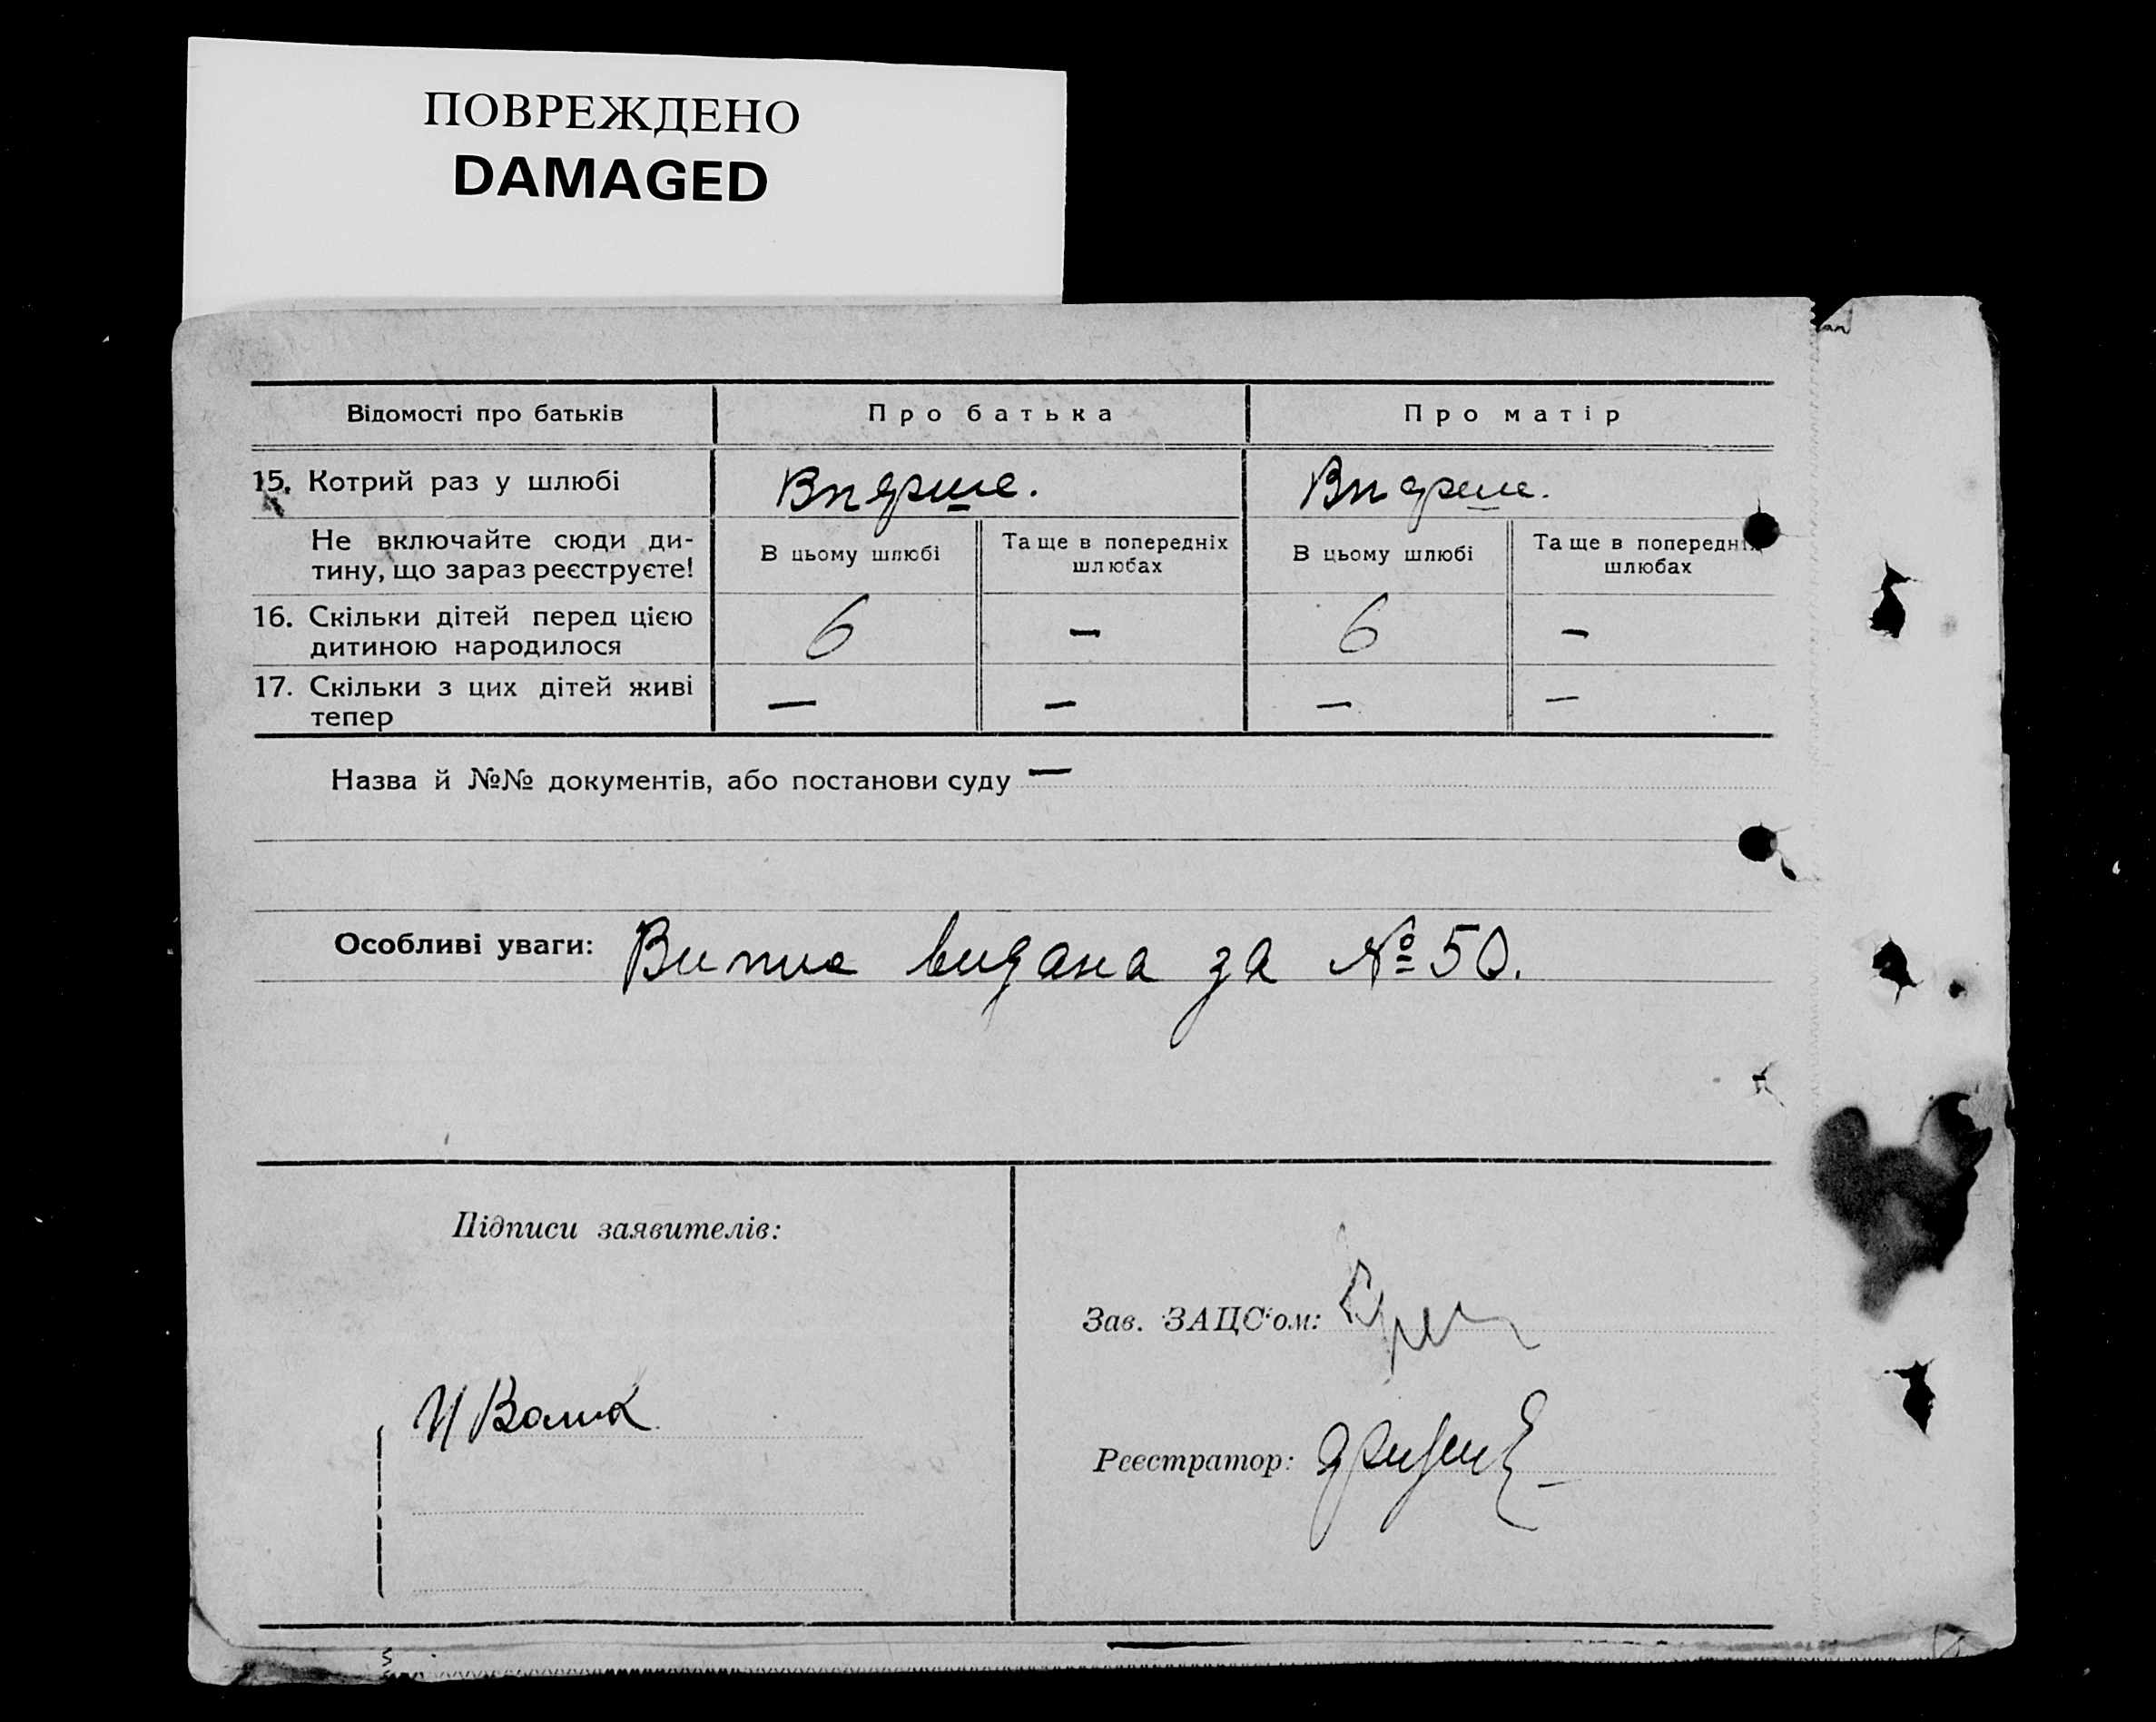 ПОВРЕЖДЕНО
DAMAGED
Відомості про батьків
Про батька
Про матір
15. Котрий раз у шлюбі
Вперше.
Вперше.
Не включайте сюди ди-
тину, що зараз реєструєте!
В цьому шлюбі
Та ще в попередніх
шлюбах
В цьому шлюбі
Та ще в попередніх
шлюбах
16. Скільки дітей перед цією
дитиною народилося
6
—
6
—
17. Скільки з цих дітей живі
тепер
—
—
—
—
Назва й №№ документів, або постанови суду —
Особливі уваги: Випис видана за № 50.
Підписи заявителів:
Зав. ЗАЦС'ом:
Реєстратор: